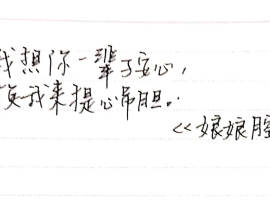 我想你一辈子安心,
我来提心吊胆.
<<娘娘腔